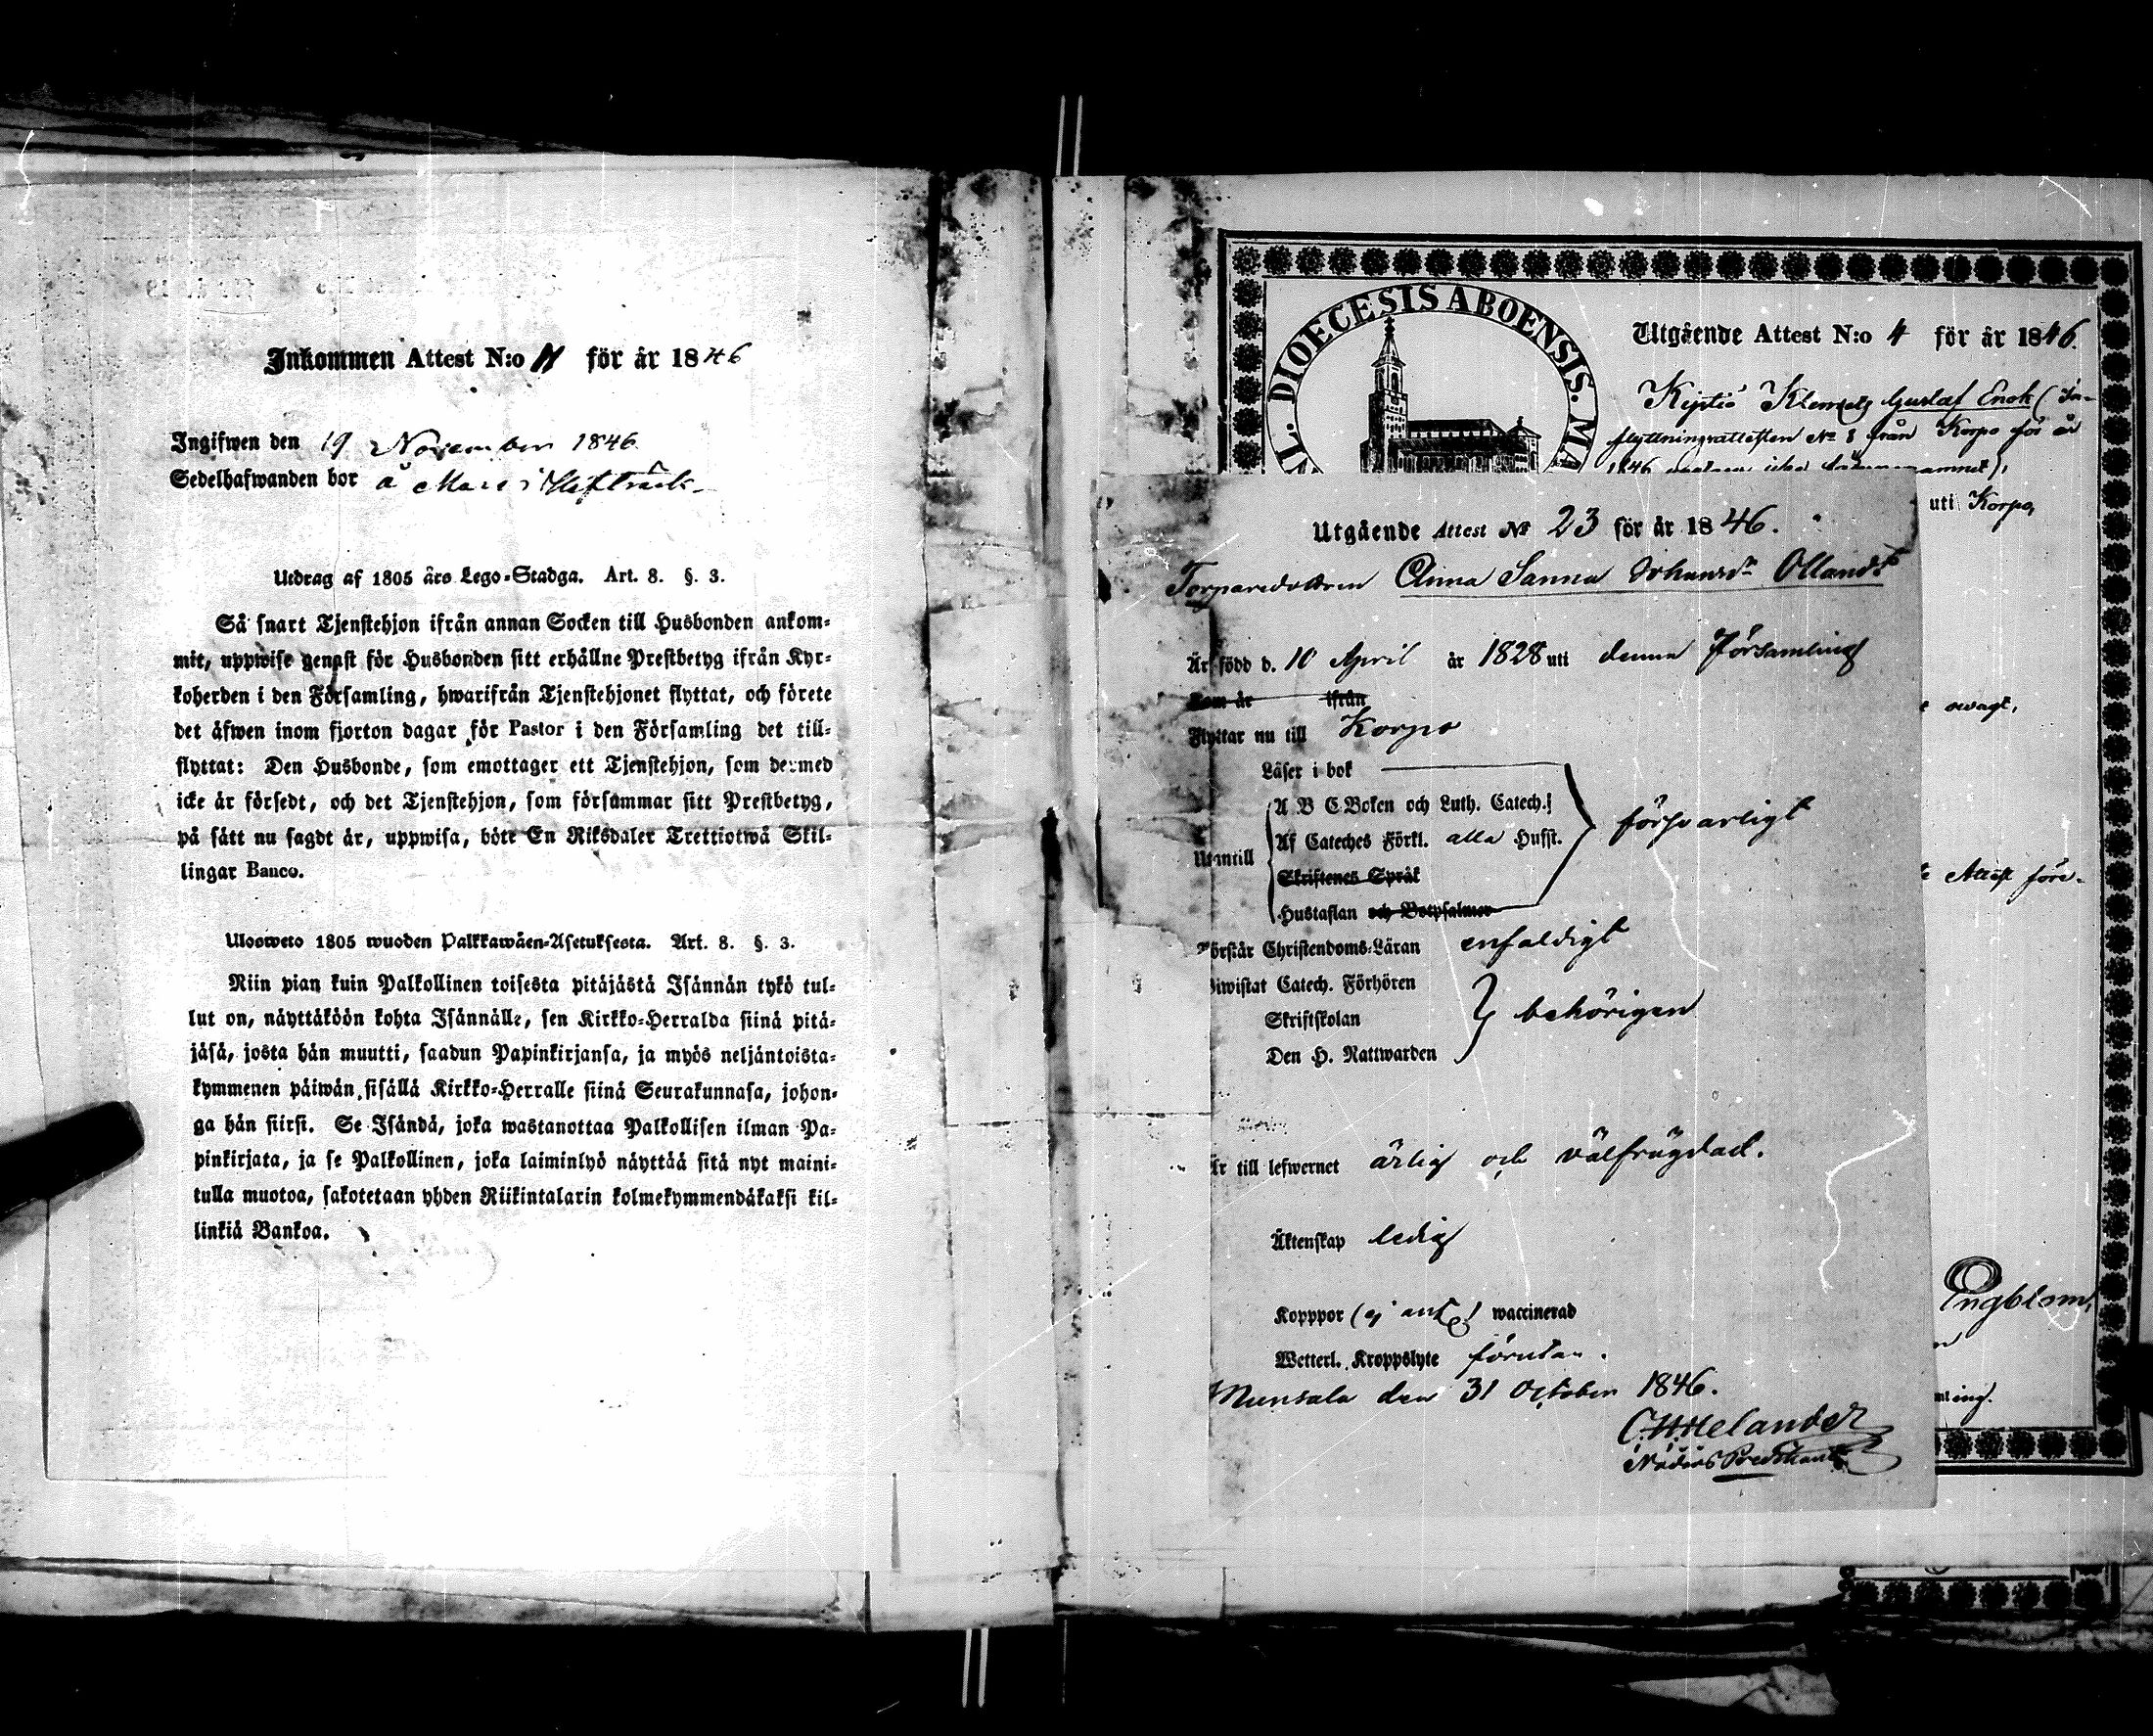 Inkommen Attest N:o 11 för år 1846
Ingifwen den 19 November 1846
Sedelhafwanden bor å
Utdrag af 1805 års Lego-Stadga. Art. 8. §. 3.
Så snart Tjenstehjon ifrån annan Socken till Husbonden ankom-
mit, uppwise genast för Husbonden sitt erhållne Prestbetyg ifrån Kyr-
koherden i den Församling, hwarifrån Tjenstehjonet flyttat, och förete
det äfwen inom fjorton dagar för Pastor i den Församling det till-
flyttat: Den Husbonde, som emottager ett Tjenstehjon, som dermed
icke är försedt, och det Tjenstehjon, som försummar sitt Prestbetyg,
på sätt nu sagdt är, uppwisa, böte En Riksdaler Trettiotwå Skil-
lingar Banco.
Ulosweto 1805 wuoden Palkkawäen-Asetuksesta. Art. 8. §. 3.
Niin pian kuin Palkollinen toisesta pitäjästä Isännän tykö tul-
lut on, näyttäköön kohta Isännälle, sen Kirkko-Herralda siinä pitä-
jäsä, josta hän muutti, saadun Papinkirjansa, ja myös neljäntoista-
kymmenen päiwän sisällä Kirkko-Herralle siinä Seurakunnasa, johon-
ga hän siirsi. Se Isändä, joka wastanottaa Palkollisen ilman Pa-
pinkirjata, ja se Palkollinen, joka laiminlyö näyttää sitä nyt maini-
tulla muotoa, sakotetaan yhden Riikintalarin kolmekymmendäkaksi kil-
linkiä Bankoa.
DIOECESIS ABOENSIS. MA
Utgående Attest N:o 4 för år 1846.
Klemets Gustaf Enok (In-
flyttningsattesten No 8 från Korpo för år
1846
uti Korpo,
Attest före-
Engblom,
Utgående Attest No 23 för år 1846.
Torparedottren Anna Sanna Johansdr Ollandt
Är född d. 10 April år 1828 uti denna Församling
Kom år ifrån
Flyttar nu till Korpo
Läser i bok
A B C Boken och Luth. Catech.
Utantill Af Cateches Förkl. alla Hufst. försvarligt
Skriftenes Språk
Hustaflan och Botpsalmer
Förstår Christendoms-Läran enfaldigt
Biwistat Catech. Förhören
Skriftskolan behörigen
Den H. Nattwarden
Är till lefwernet ärlig och välfrägdad.
Äktenskap ledig
Kopppor (ej haft) waccinerad
Wetterl. Kroppslyte förutan.
Munsala den 31 October 1846.
C. H. Helander
Nådårs Predikant